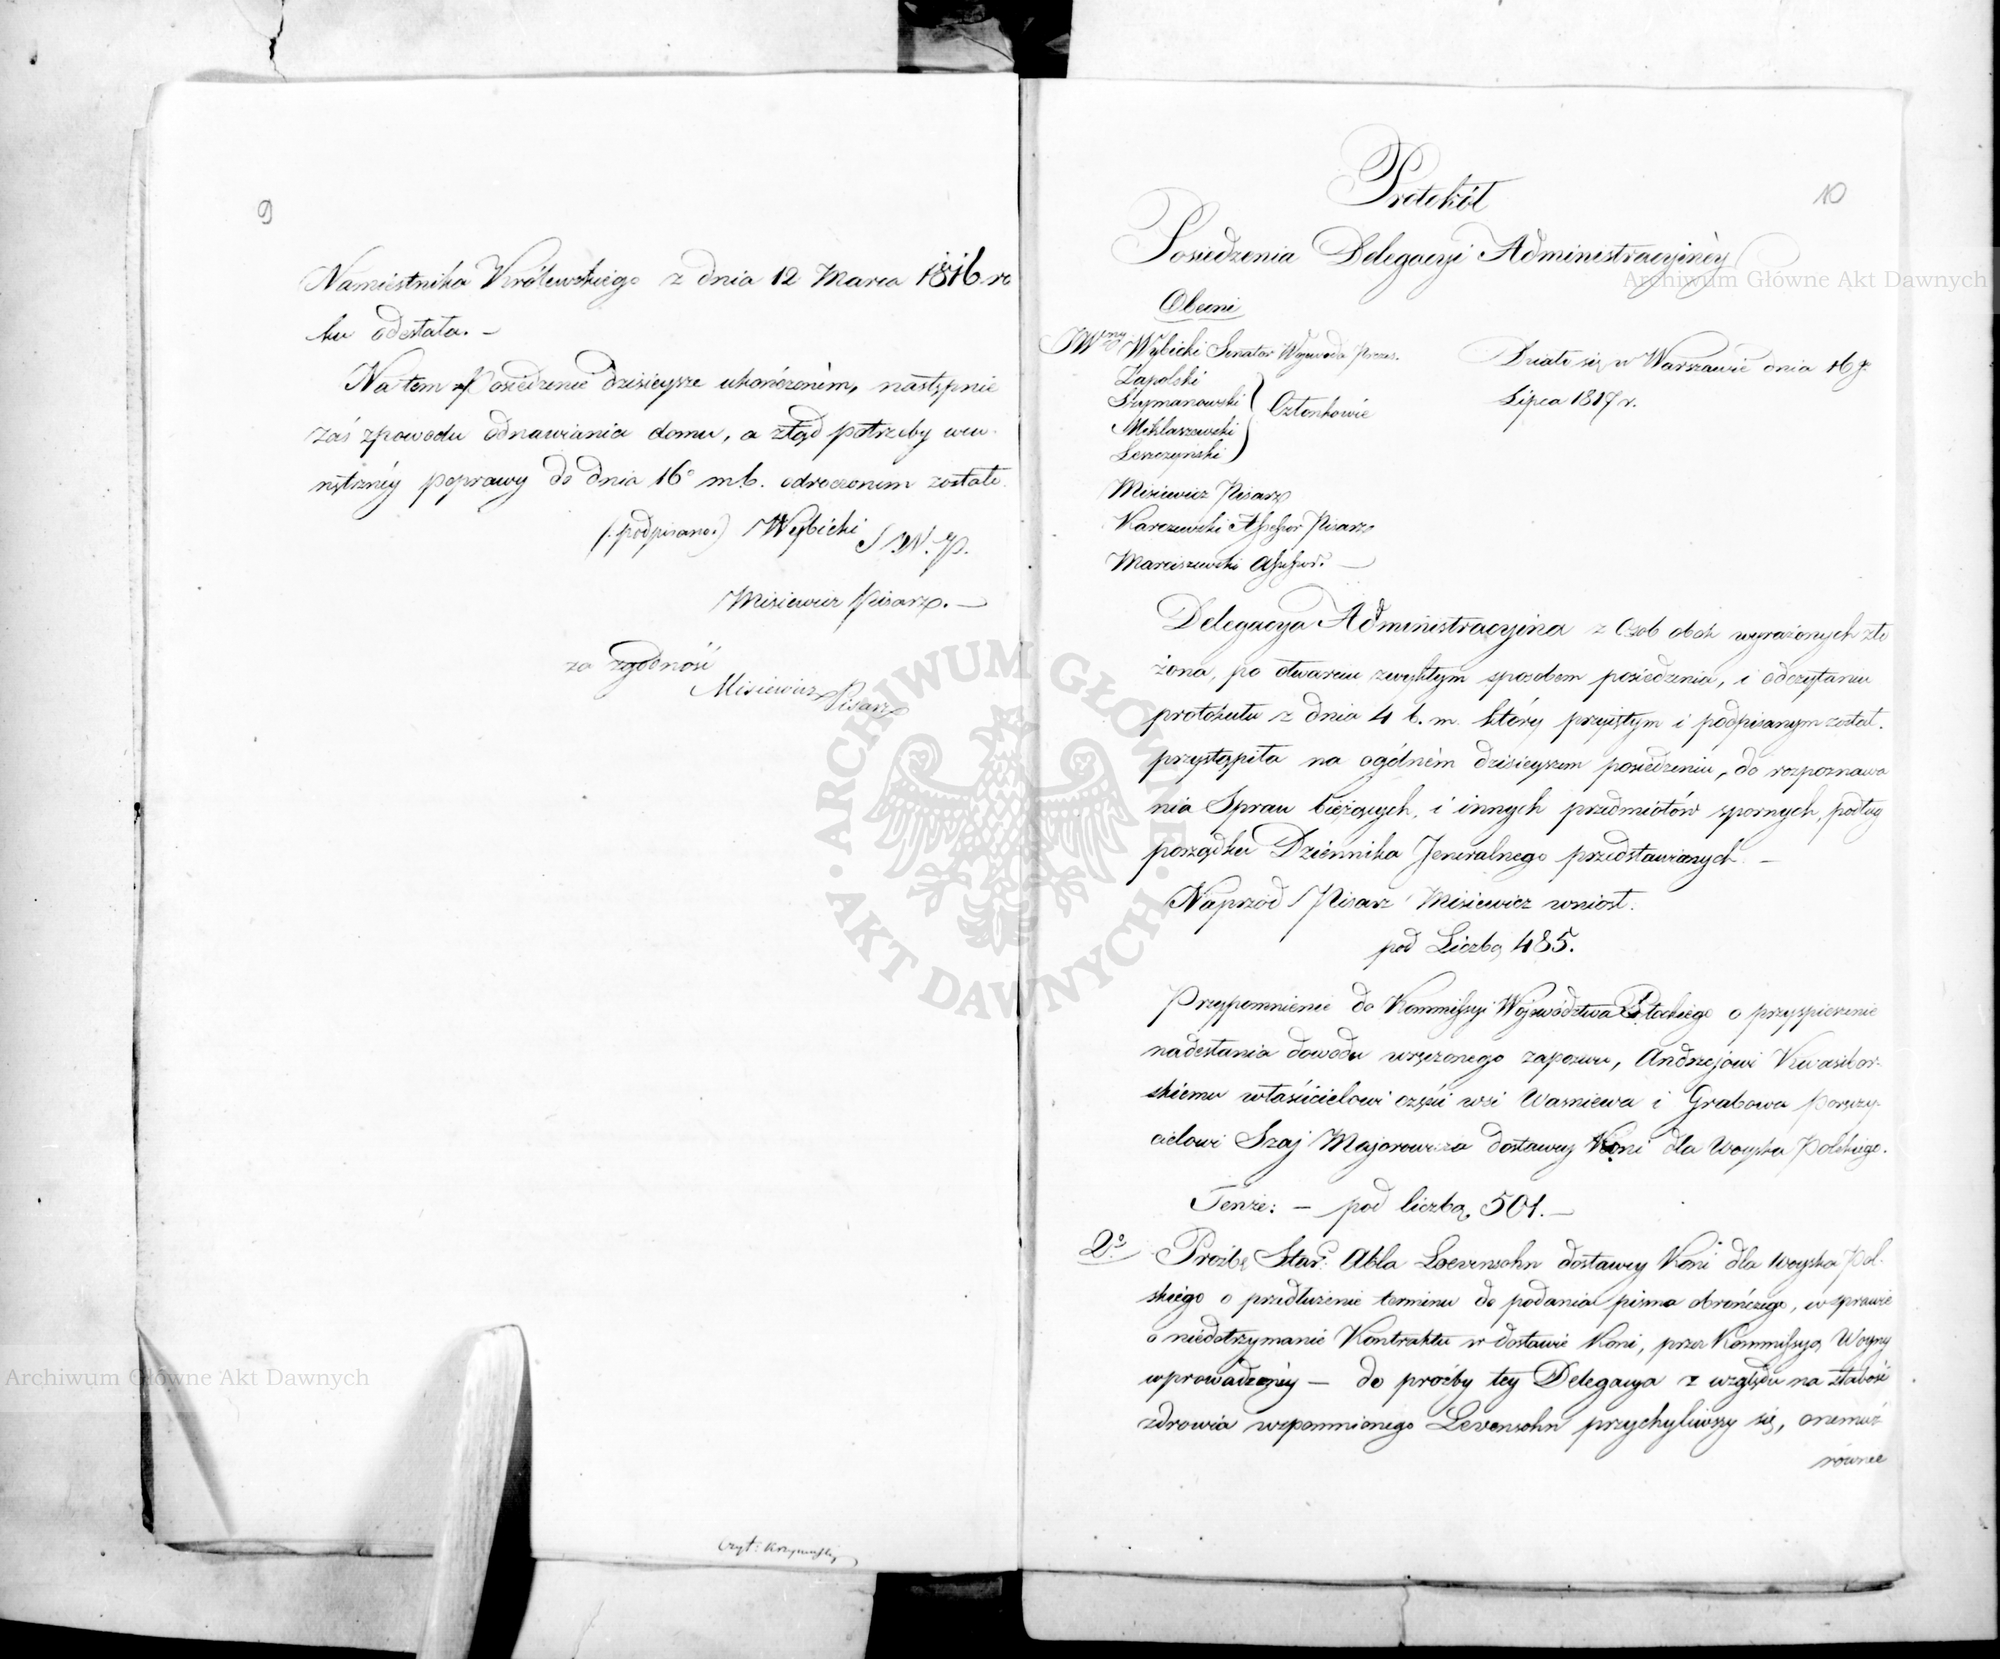 9
Namiestnika Królewskiego z dnia 12 Marca 1816 ro
ku odesłała. –
Na tem Posiedzenie dzisieysze ukończoném, następnie
zaś z powodu odnawiania domu, a ztąd potrzeby wew-
nętrznéy poprawy do dnia 16º m.b. odroczonem zostało.
(:podpisano:) Wybicki S. W. P.
Misiewicz Pisarz. –
za zgodność
Misiewicz Pisarz
Czyt:
10
Protokół
Posiedzenia Delegacyi Administracyinéy
Obecni
JWny Wybicki Senator Wojewoda Prezes.
Zapolski
Szymanowski
Miklaszewski
Leszczynski
Członkowie
Misiewicz Pisarz
Karczewski Assessor Pisarz
Marciszewski Assessor. –
Działo się w Warszawie dnia 16 go
Lipca 1817 r.
Delegacya Administracyina z Osób obok wyrażonych zło
żona, po otwarciu zwykłym sposobem posiedzenia, i odczytaniu
protokułu z dnia 4 b. m. który przyiętym i podpisanym został.
przystąpiła na ogólném dzisieyszem posiedzeniu, do rozpoznawa
nia Spraw bieżących, i innych przedmiotów spornych, podług
porządku Dziennika Jeneralnego przedstawionych. –
Naprzód Pisarz Misiewicz wniosł.
pod Liczbą 485.
Przypomnienie do Kommissyi Województwa Płockiego o przyspieszenie
nadesłania dowodu wręczonego zapozwu, Andrzejowi Kwasibor-
skiemu właścicielowi części wsi Wasniewa i Grabowa poręczy-
cielowi Szaj Majorowicza dostawcy Koni dla Woyska Polskiego.
Tenże: – pod liczbą 501. –
2º Prożbę Star: Abla Loevensohn dostawcy Koni dla Woyska Pol-
skiego o przedłużenie terminu do podania pisma obrończego, w sprawie
o niedotrzymanie Kontraktu w dostawie Koni, przez Kommissyą Woyny
wprowadzonéy – do proźby tey Delegacya z względu na słabość
zdrowia wspomnionego Levensohn przychyliwszy się, onemuż
równie
Archiwum Główne Akt Dawnych
ARCHIWUM GŁÓWNE AKT DAWNYCH
Archiwum Główne Akt Dawnych